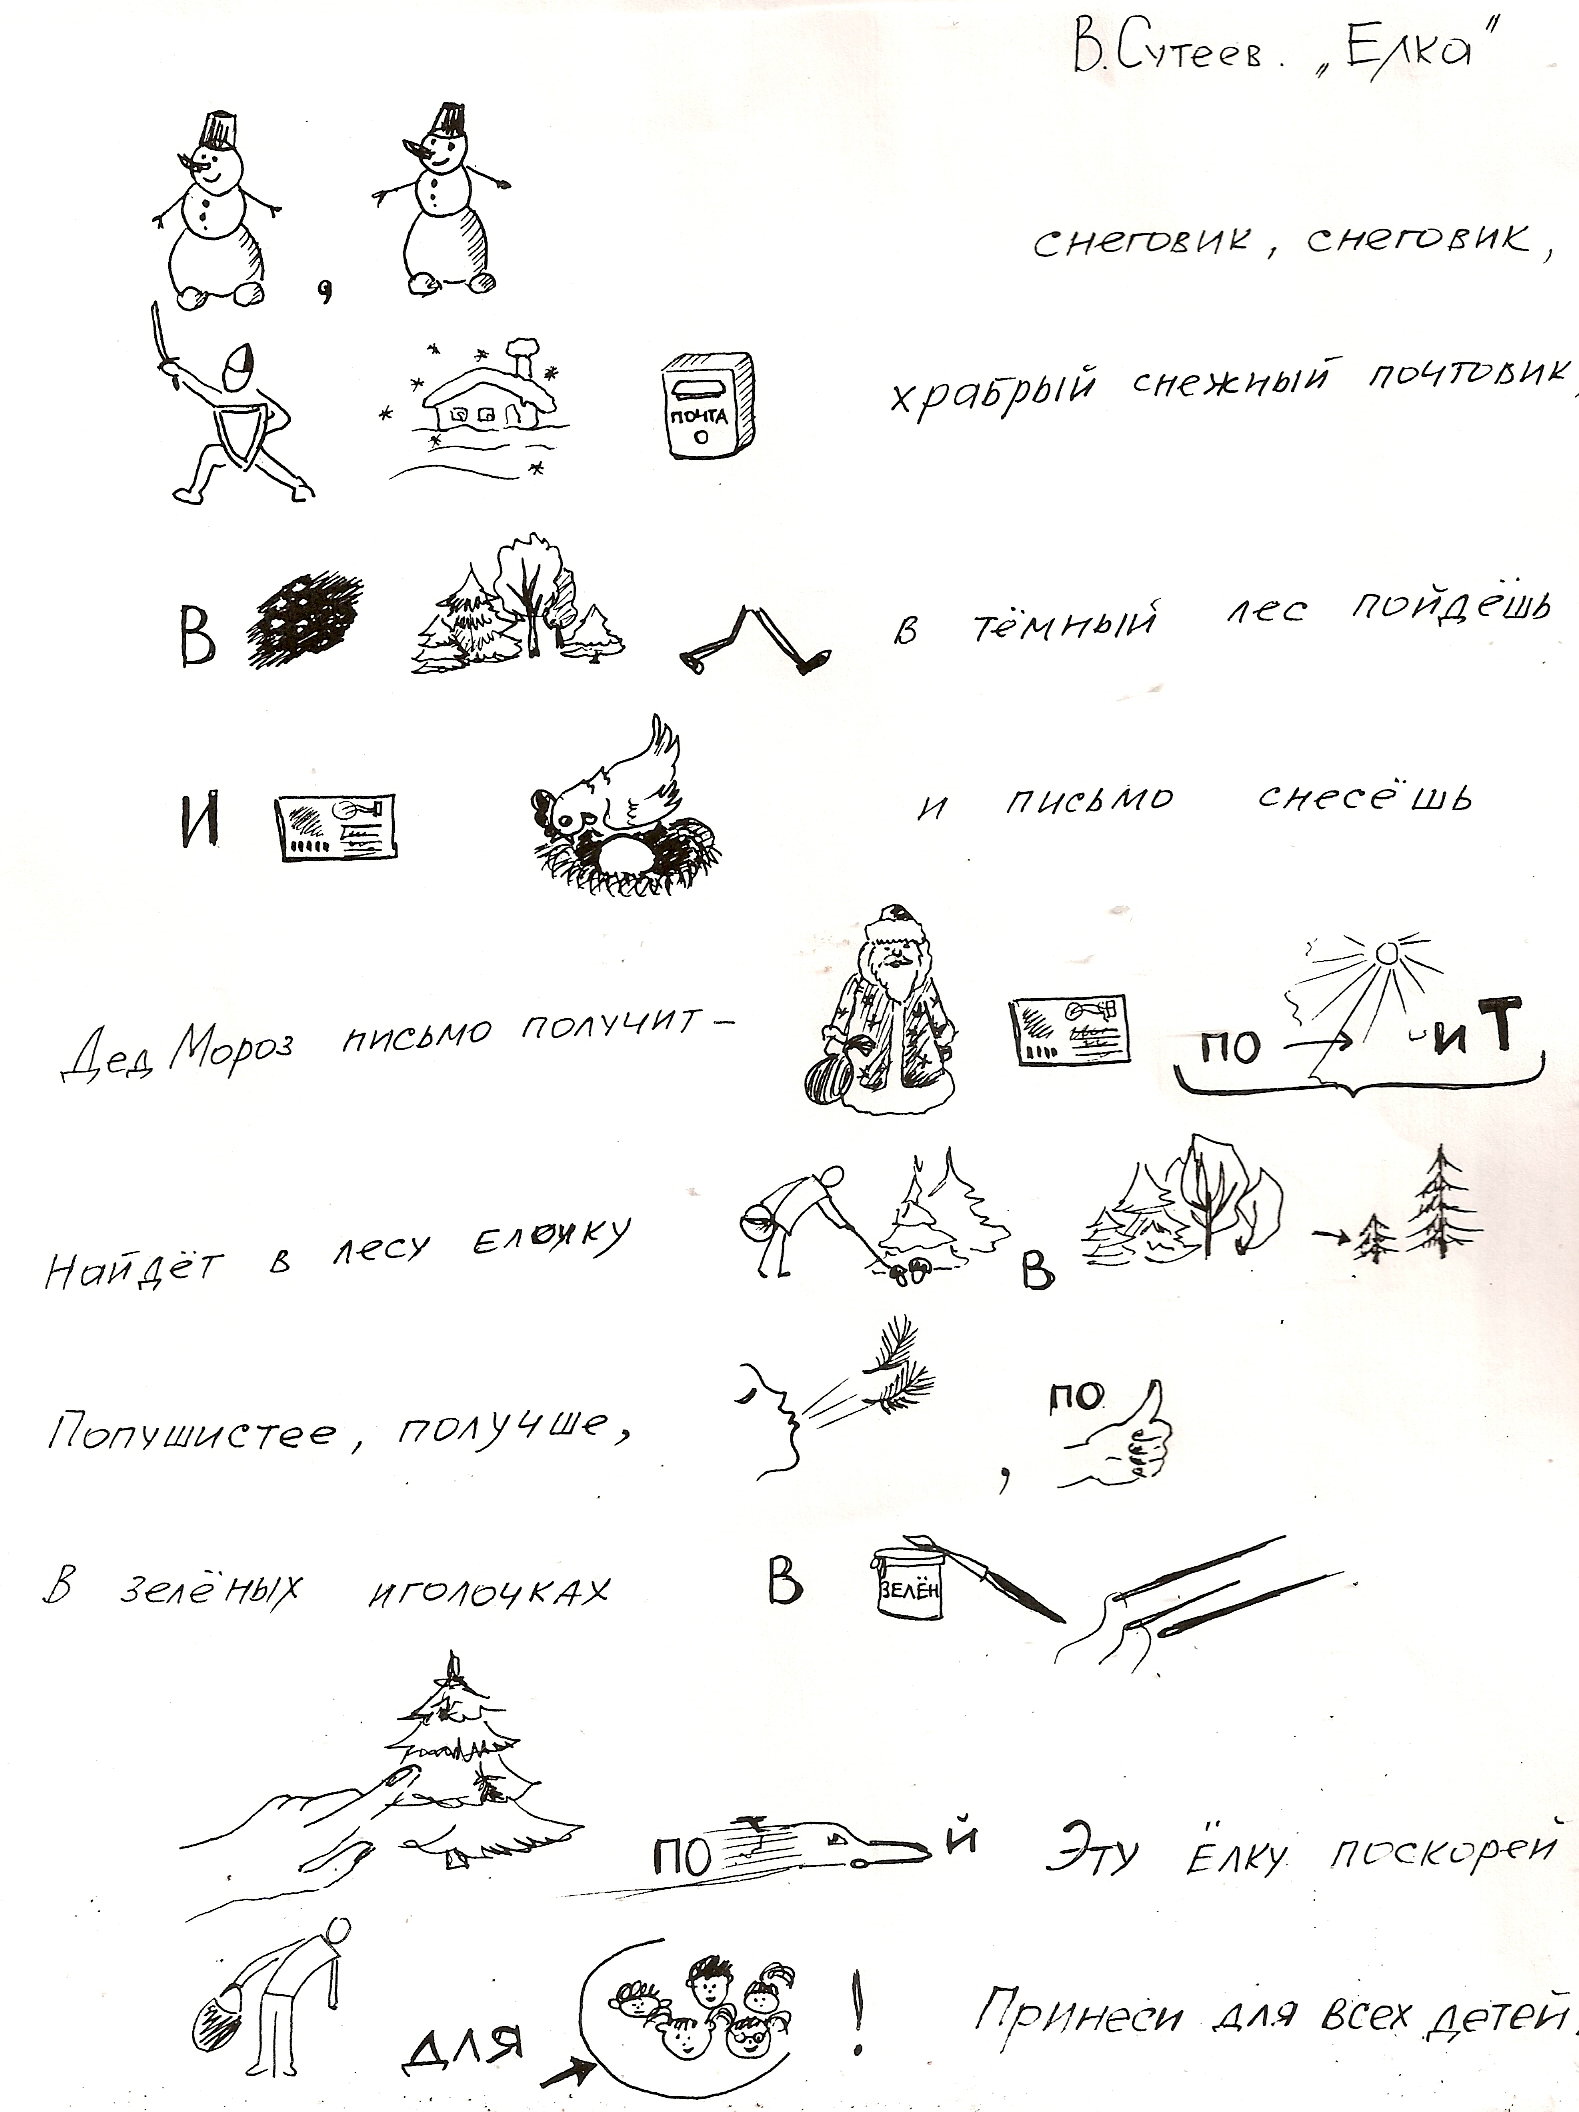 В. Сутеев. „Елка"
, снеговик, снеговик,
ПОЧТА храбрый снежный почтовик,
В в тёмный лес пойдёшь
И и письмо снесёшь
Дед Мороз письмо получит – по ит
Найдёт в лесу елочку в
Попушистее, получше, , по
В зелёных иголочках В ЗЕЛЁН
по й Эту Ёлку поскорей
для ! Принеси для всех детей.